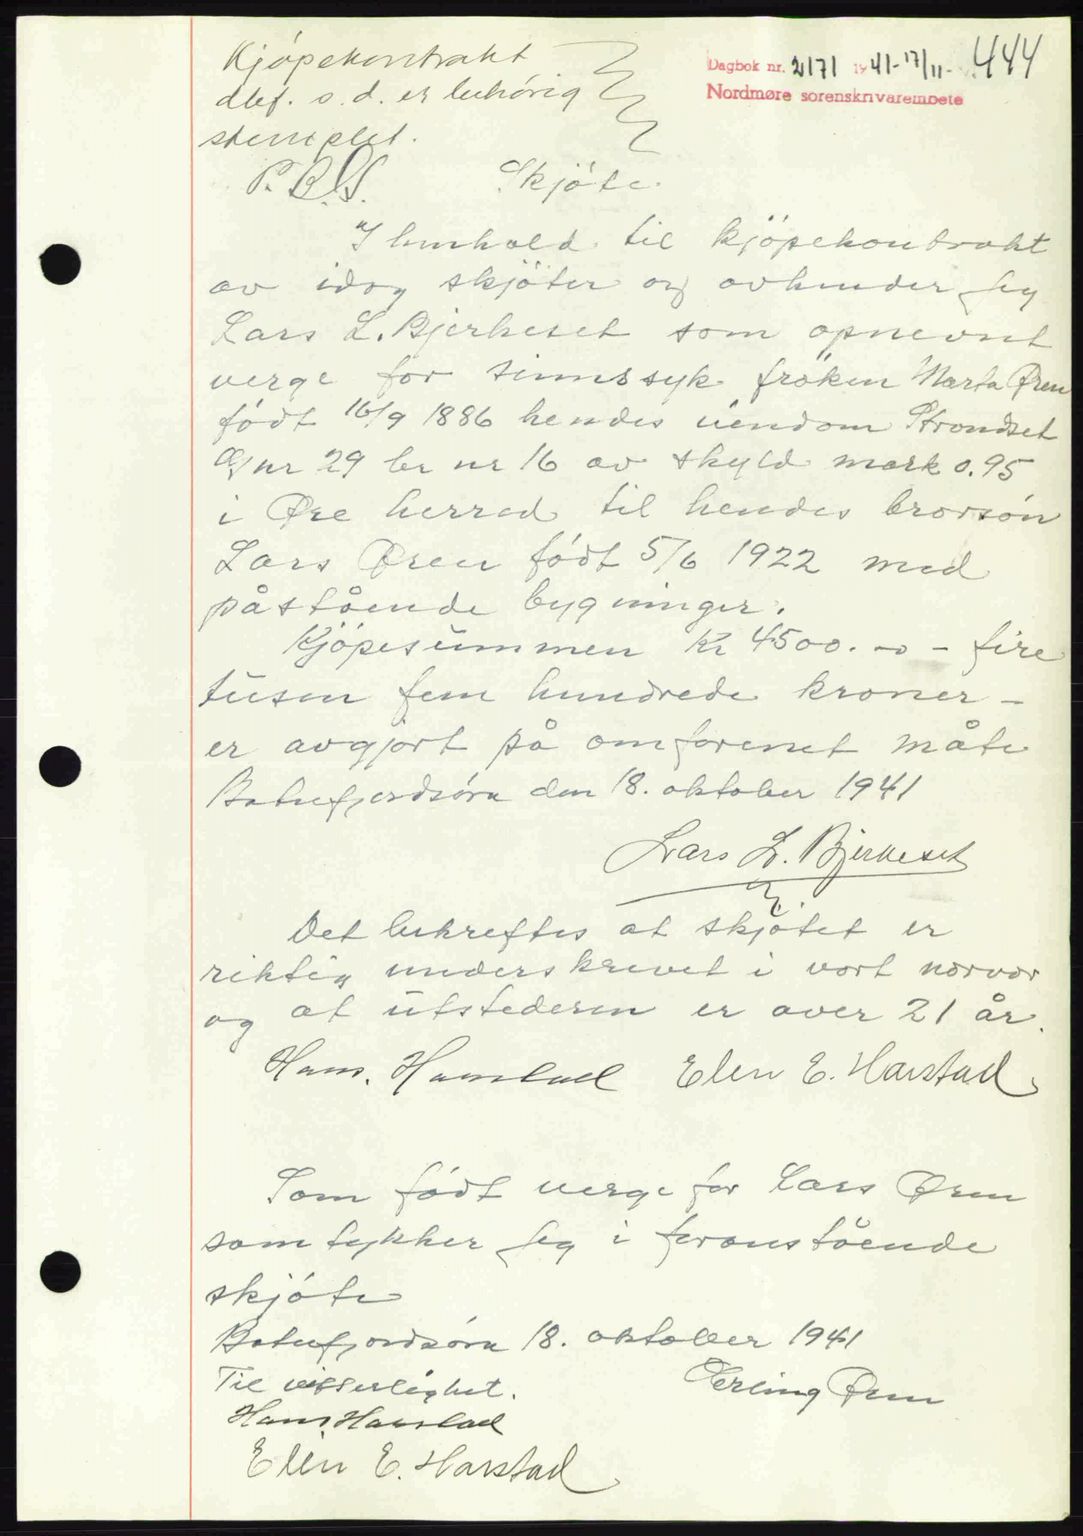 Kjöpekontrakt
dbf. s.d. er behörig
stemplet.
Dagbok nr. 2171 1941-17/11- 444
Nordmøre sorenskriverembete
Skjöte.
I henhold til kjöpekontrakt
av idag skjöter og avhender jeg
Lars L. Bjerkeset som opnevnt
verge for sinnssyk fröken Marta Øren
födt 16/9 1886 hendes eiendom Strandset
Gr nr 29 br nr 16 av skyld mark 0.95
i Øre herred til hendes brorsön
Lars Øren födt 5/6 1922 med
påstående bygninger.
Kjöpesummen Kr 4500.-o - fire
tusen fem hundrede kroner -
er avgjort på omforenet måte
Batnfjordsøra den 18. oktober 1941
Lars L. Bjerkeset
Det bekreftes at skjötet er
riktig underskrevet i vort nærvær
og at utstederen er over 21 år.
Hans Harstad Elen E. Harstad
Som födt verge for Lars Øren
samtykker jeg i foranstående
skjöte
Batnfjordsøra 18. oktober 1941
Til visserlighet. Erling Øren
Hans Harstad
Elen E. Harstad